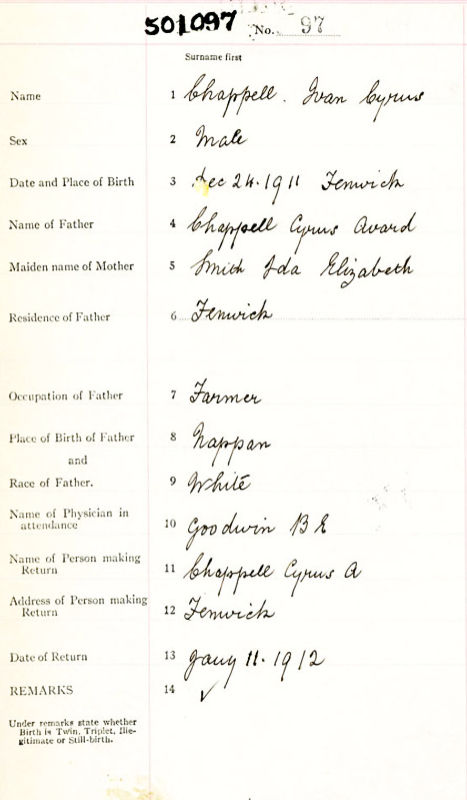 501097 No. 97
Surname first
Name 1 Chappell. Ivan Cyrus
Sex 2 Male
Date and Place of Birth 3 Dec 24. 1911 Fenwick
Name of Father 4 Chappell Cyrus Avard
Maiden name of Mother 5 Smith Ida Elizabeth
Residence of Father 6 Fenwick
Occupation of Father 7 Farmer
Place of Birth of Father 8 Nappan
and
Race of Father. 9 White
Name of Physician in
attendance 10 Goodwin B E
Name of Person making
Return 11 Chappell Cyrus A
Address of Person making
Return 12 Fenwick
Date of Return 13 Jany 11. 1912
REMARKS 14 ✓
Under remarks state whether
Birth is Twin, Triplet, Ille-
gitimate or Still-birth.